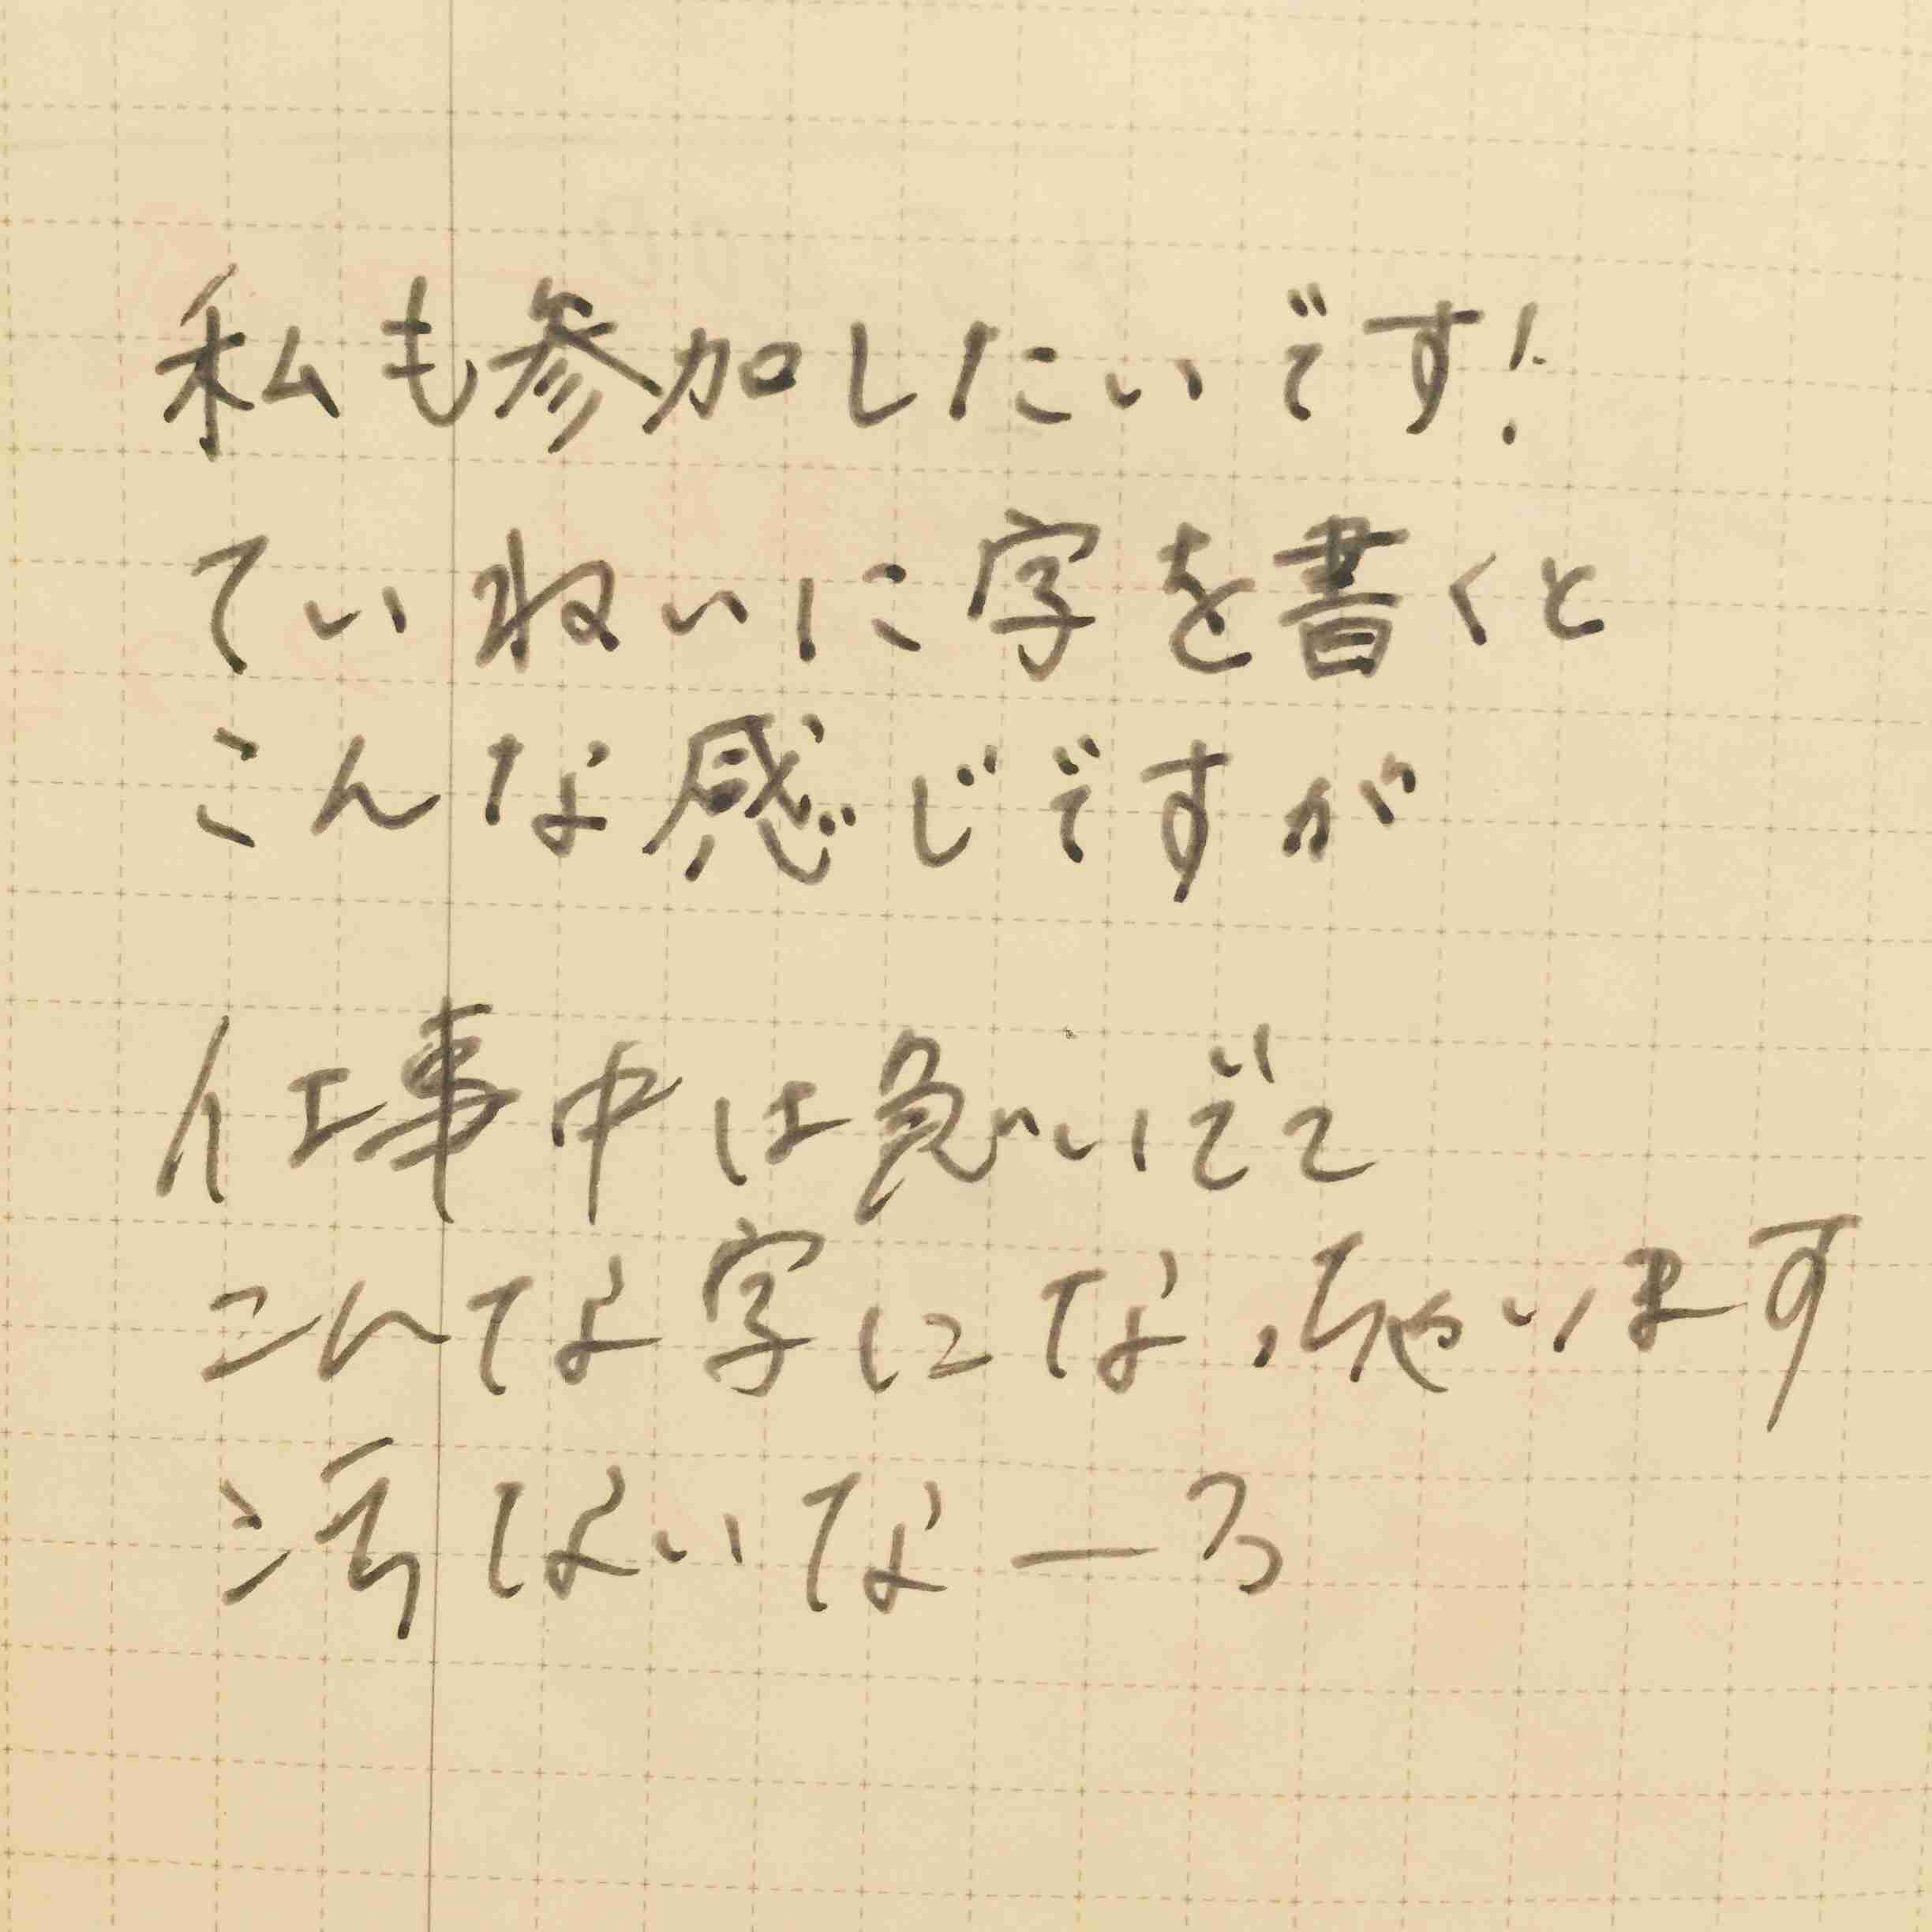 私も参加したいです!
ていねいに字を書くと
こんな感じですが
仕事中は急いでて
こんな字になっちゃいます
汚ないなーろ